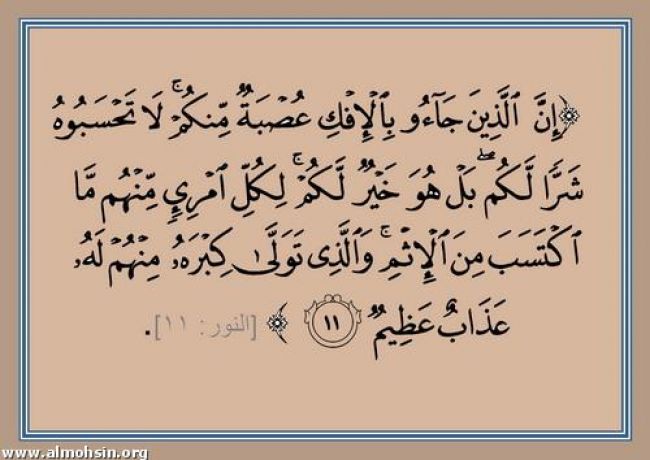 ﴿إِنَّ ٱلَّذِينَ جَآءُو بِٱلْإِفْكِ عُصْبَةٌ مِّنكُمْ ۚ لَا تَحْسَبُوهُ
شَرًّا لَّكُم ۖ بَلْ هُوَ خَيْرٌ لَّكُمْ ۚ لِكُلِّ ٱمْرِئٍ مِّنْهُم مَّا
ٱكْتَسَبَ مِنَ ٱلْإِثْمِ ۚ وَٱلَّذِى تَوَلَّىٰ كِبْرَهُۥ مِنْهُمْ لَهُۥ
عَذَابٌ عَظِيمٌ ١١ ﴾ [النور: ١١].
www.almohsin.org